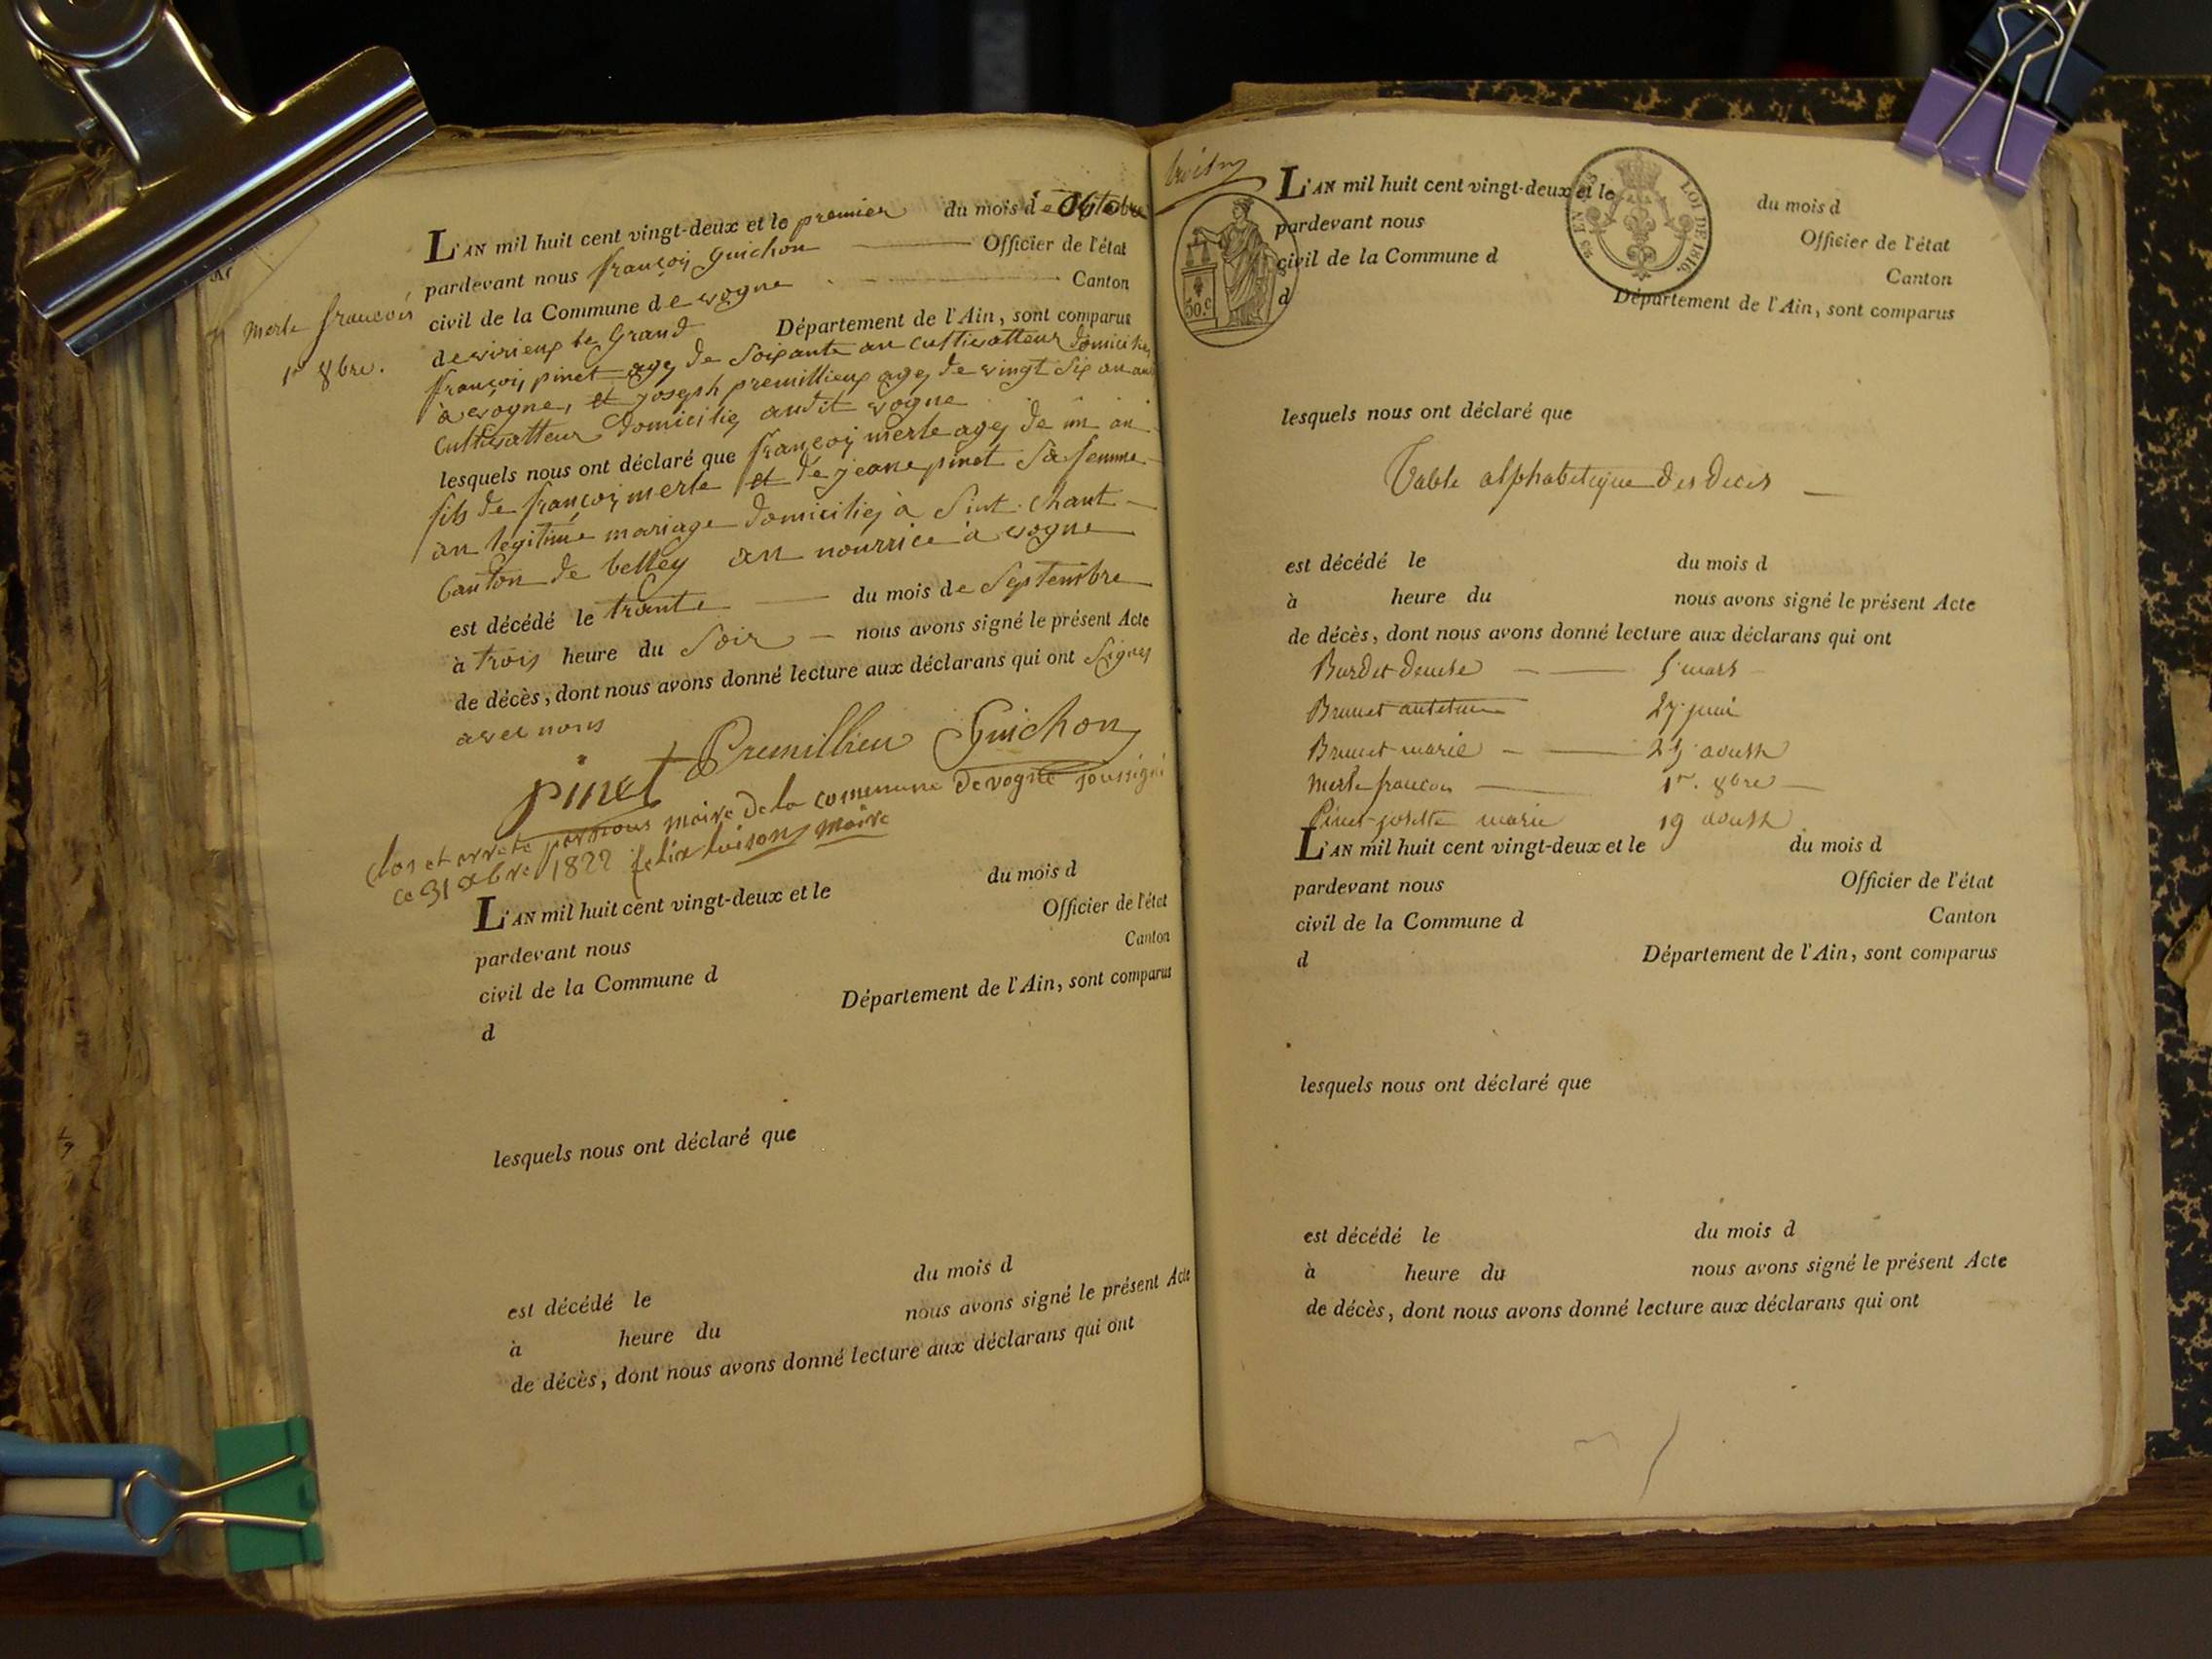 Merle françois
1er 8bre.
L'AN mil huit cent vingt-deux et le premier du mois de Octobre
pardevant nous françois Guichon Officier de l'état
civil de la Commune de vogne Canton
de virieux le Grand Département de l'Ain, sont comparus
françois pinet agés de Soixante an cultivatteur domicilies
à vogne, et joseph premillieux agés de vingt Six an
Cultivatteur domiciliés audit vogne
lesquels nous ont déclaré que françois merle agés de un an
fils de françois merle et de jeane pinet Sa femme
an legitime mariage domiciliés à Sint. Chant
Canton de belley an nourrice à vogne
est décédé le trante du mois de Septembre
à trois heure du Soir nous avons signé le présent Acte
de décès, dont nous avons donné lecture aux déclarans qui ont Signes
avec nous
pinet Premillieu Guichon
Clos et arreté par nous maire de la commune de vogne soussigné
ce 31 xbre 1822 felix luison maire
L'AN mil huit cent vingt-deux et le du mois d
pardevant nous Officier de l'état
civil de la Commune d Canton
d Département de l'Ain, sont comparus
lesquels nous ont déclaré que
est décédé le du mois d
à heure du nous avons signé le présent Acte
de décès, dont nous avons donné lecture aux déclarans qui ont
L'AN mil huit cent vingt-deux et le du mois d
pardevant nous Officier de l'état
civil de la Commune d Canton
d Département de l'Ain, sont comparus
50.c
LOI DE 1816.
lesquels nous ont déclaré que
Table alphabetique des deces
est décédé le du mois d
à heure du nous avons signé le présent Acte
de décès, dont nous avons donné lecture aux déclarans qui ont
Burdet 5 mars
Brunet 27 juin
Brunet marie 25 aoust
Merle francois 1er. 8bre
Pinet josette marie 19 aoust
L'AN mil huit cent vingt-deux et le du mois d
pardevant nous Officier de l'état
civil de la Commune d Canton
d Département de l'Ain, sont comparus
lesquels nous ont déclaré que
est décédé le du mois d
à heure du nous avons signé le présent Acte
de décès, dont nous avons donné lecture aux déclarans qui ont